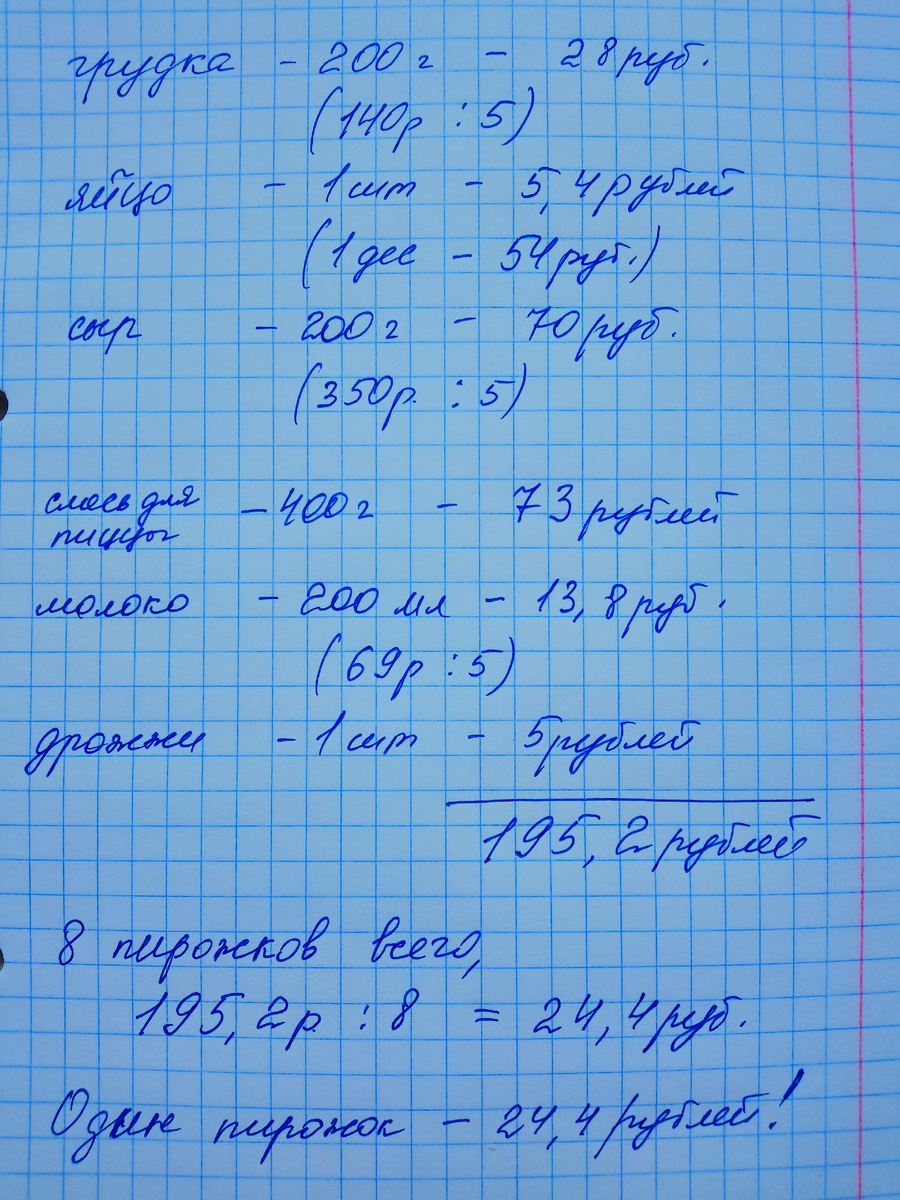 грудка - 200 г - 28 руб.
(140р : 5)
яйцо - 1 шт - 5,4 рублей
(1 дес - 54 руб.)
сыр - 200 г - 70 руб.
(350р. : 5)
смесь для
пиццы - 400 г - 73 рублей
молоко - 200 мл - 13,8 руб.
(69р : 5)
дрожжи - 1 шт - 5 рублей
195,2 рублей
8 пирожков всего,
195,2р. : 8 = 24,4 руб.
Один пирожок - 24,4 рублей!